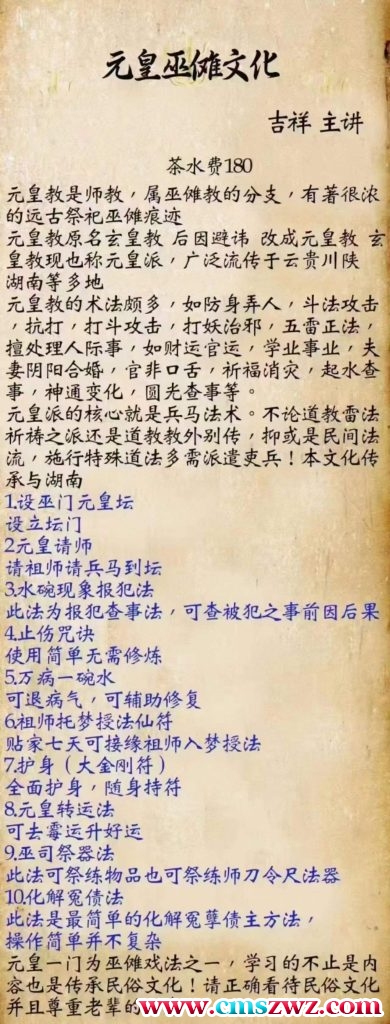 元皇巫傩文化
吉祥 主讲
茶水费180
元皇教是师教，属巫傩教的分支，有著很浓
的远古祭祀巫傩痕迹
元皇教原名玄皇教 后因避讳 改成元皇教 玄
皇教现也称元皇派，广泛流传于云贵川陕
湖南等多地
元皇教的术法颇多，如防身弄人，斗法攻击
，抗打，打斗攻击，打妖治邪，五雷正法，
擅处理人际事，如财运官运，学业事业，夫
妻阴阳合婚，官非口舌，祈福消灾，起水查
事，神通变化，圆光查事等。
元皇派的核心就是兵马法术。不论道教雷法
祈祷之派还是道教教外别传，抑或是民间法
流，施行特殊道法多需派遣吏兵！本文化传
承与湖南
1.设巫门元皇坛
设立坛门
2元皇请师
请祖师请兵马到坛
3.水碗现象报犯法
此法为报犯查事法，可查被犯之事前因后果
4.止伤咒诀
使用简单无需修炼
5.万病一碗水
可退病气，可辅助修复
6.祖师托梦授法仙符
贴家七天可接缘祖师入梦授法
7.护身（大金刚符）
全面护身，随身持符
8.元皇转运法
可去霉运升好运
9.巫司祭器法
此法可祭练物品也可祭练师刀令尺法器
10.化解冤债法
此法是最简单的化解冤孽债主方法，
操作简单并不复杂
元皇一门为巫傩戏法之一，学习的不止是内
容也是传承民俗文化！请正确看待民俗文化
并且尊重老辈的
www.cmszwz.com